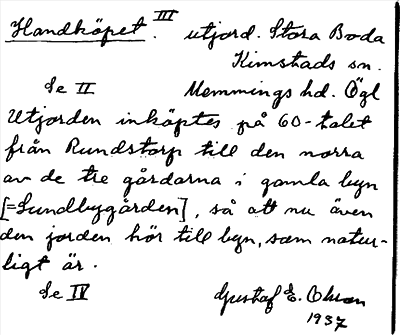 Handköpet. III utjord. Stora Boda
Kimstads sn.
Se II Memmings hd. Ögl
Utjorden inköptes på 60-talet
från Rundstorp till den norra
av de tre gårdarna i gamla byn
[=Sundbygården], så att nu även
den jorden hör till byn, som natur-
ligt är.
Se IV Gustaf E. Olsson
1937